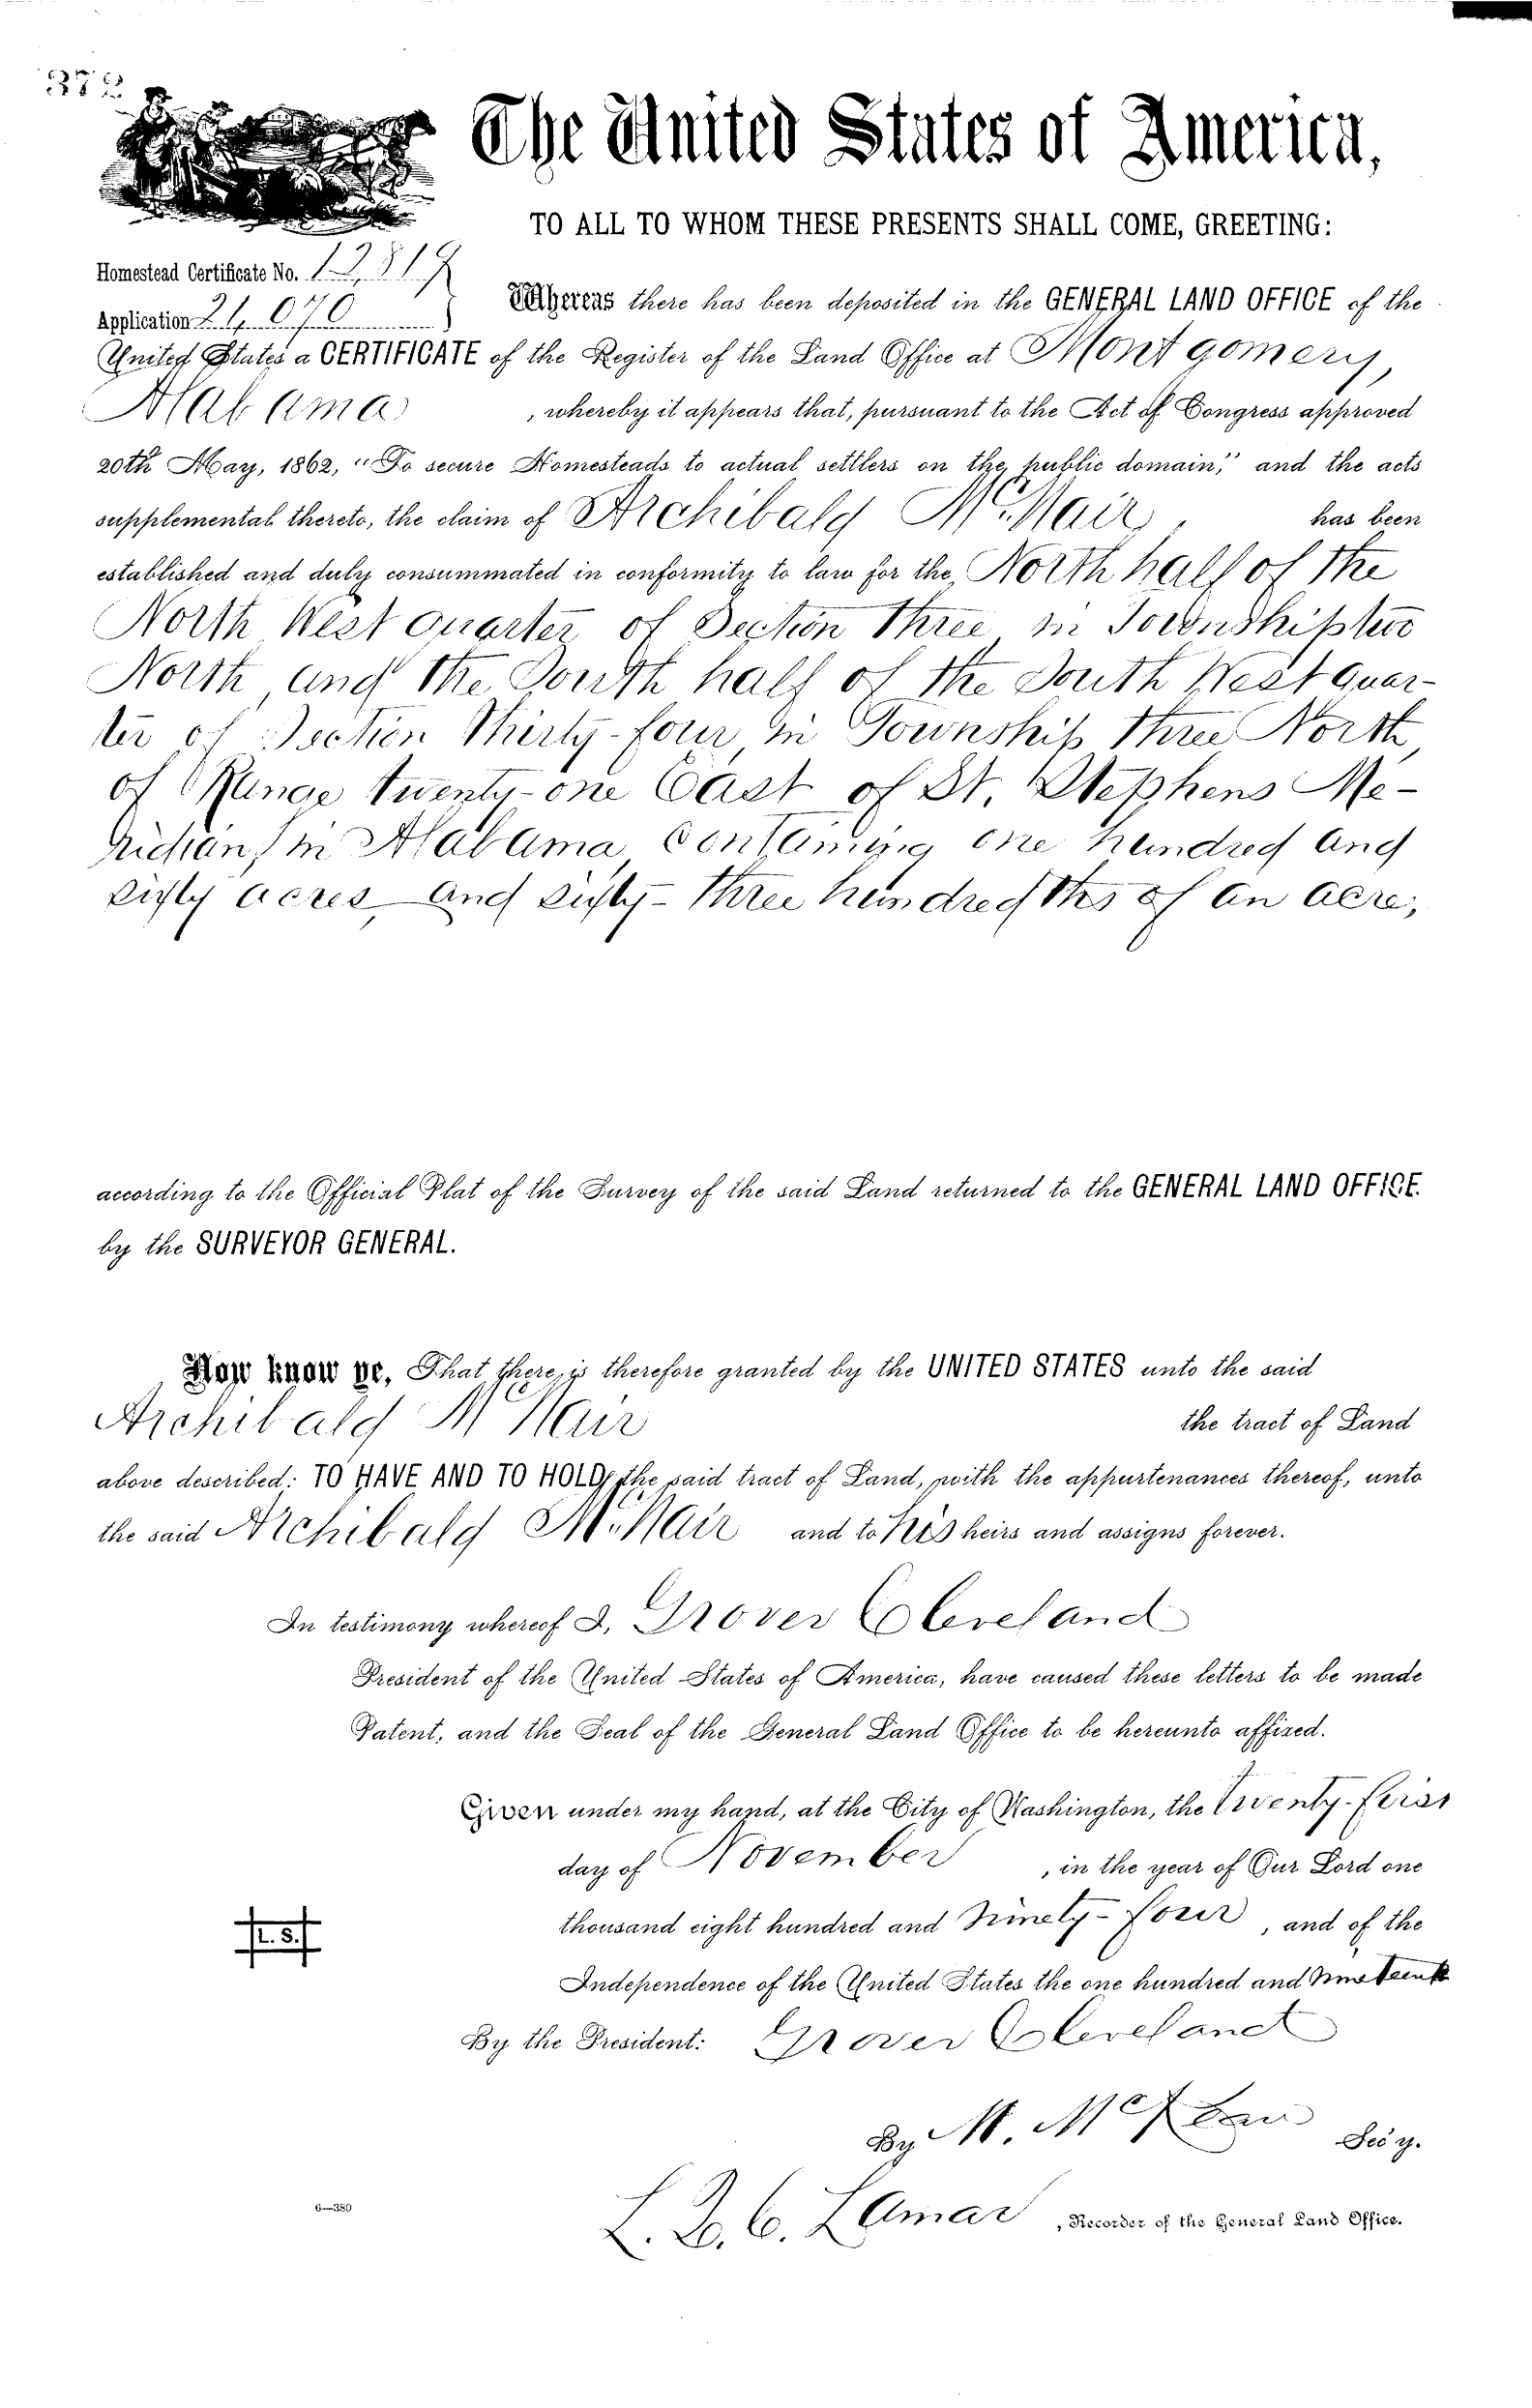 372
The United States of America,
TO ALL TO WHOM THESE PRESENTS SHALL COME, GREETING:
Homestead Certificate No. 12819
Application 21,070
Whereas there has been deposited in the GENERAL LAND OFFICE of the
United States a CERTIFICATE of the Register of the Land Office at Montgomery,
Alabama, whereby it appears that, pursuant to the Act of Congress approved
20th May, 1862, "To secure Homesteads to actual settlers on the public domain," and the acts
supplemental thereto, the claim of Archibald McNair, has been
established and duly consummated in conformity to law for the North half of the
North West quarter of Section Three in Township two
North and the South half of the South West quar-
ter of Section Thirty-four in Township Three North
of Range twenty-one East of St. Stephens Me-
ridian, in Alabama Containing one hundred and
sixty acres and sixty-three hundredths of an acre,
according to the Official Plat of the Survey of the said Land returned to the GENERAL LAND OFFICE
by the SURVEYOR GENERAL.
Now know ye, That there is therefore granted by the UNITED STATES unto the said
Archibald McNair the tract of Land
above described: TO HAVE AND TO HOLD the said tract of Land, with the appurtenances thereof, unto
the said Archibald McNair and to his heirs and assigns forever.
In testimony whereof I, Grover Cleveland
President of the United States of America, have caused these letters to be made
Patent, and the Seal of the General Land Office to be hereunto affixed.
Given under my hand, at the City of Washington, the Twenty-first
day of November, in the year of Our Lord one
thousand eight hundred and Ninety-four, and of the
Independence of the United States the one hundred and nineteenth
By the President: Grover Cleveland
By M. McKean Sec'y.
L. Q. C. Lamar, Recorder of the General Land Office.
L. S.
6—380